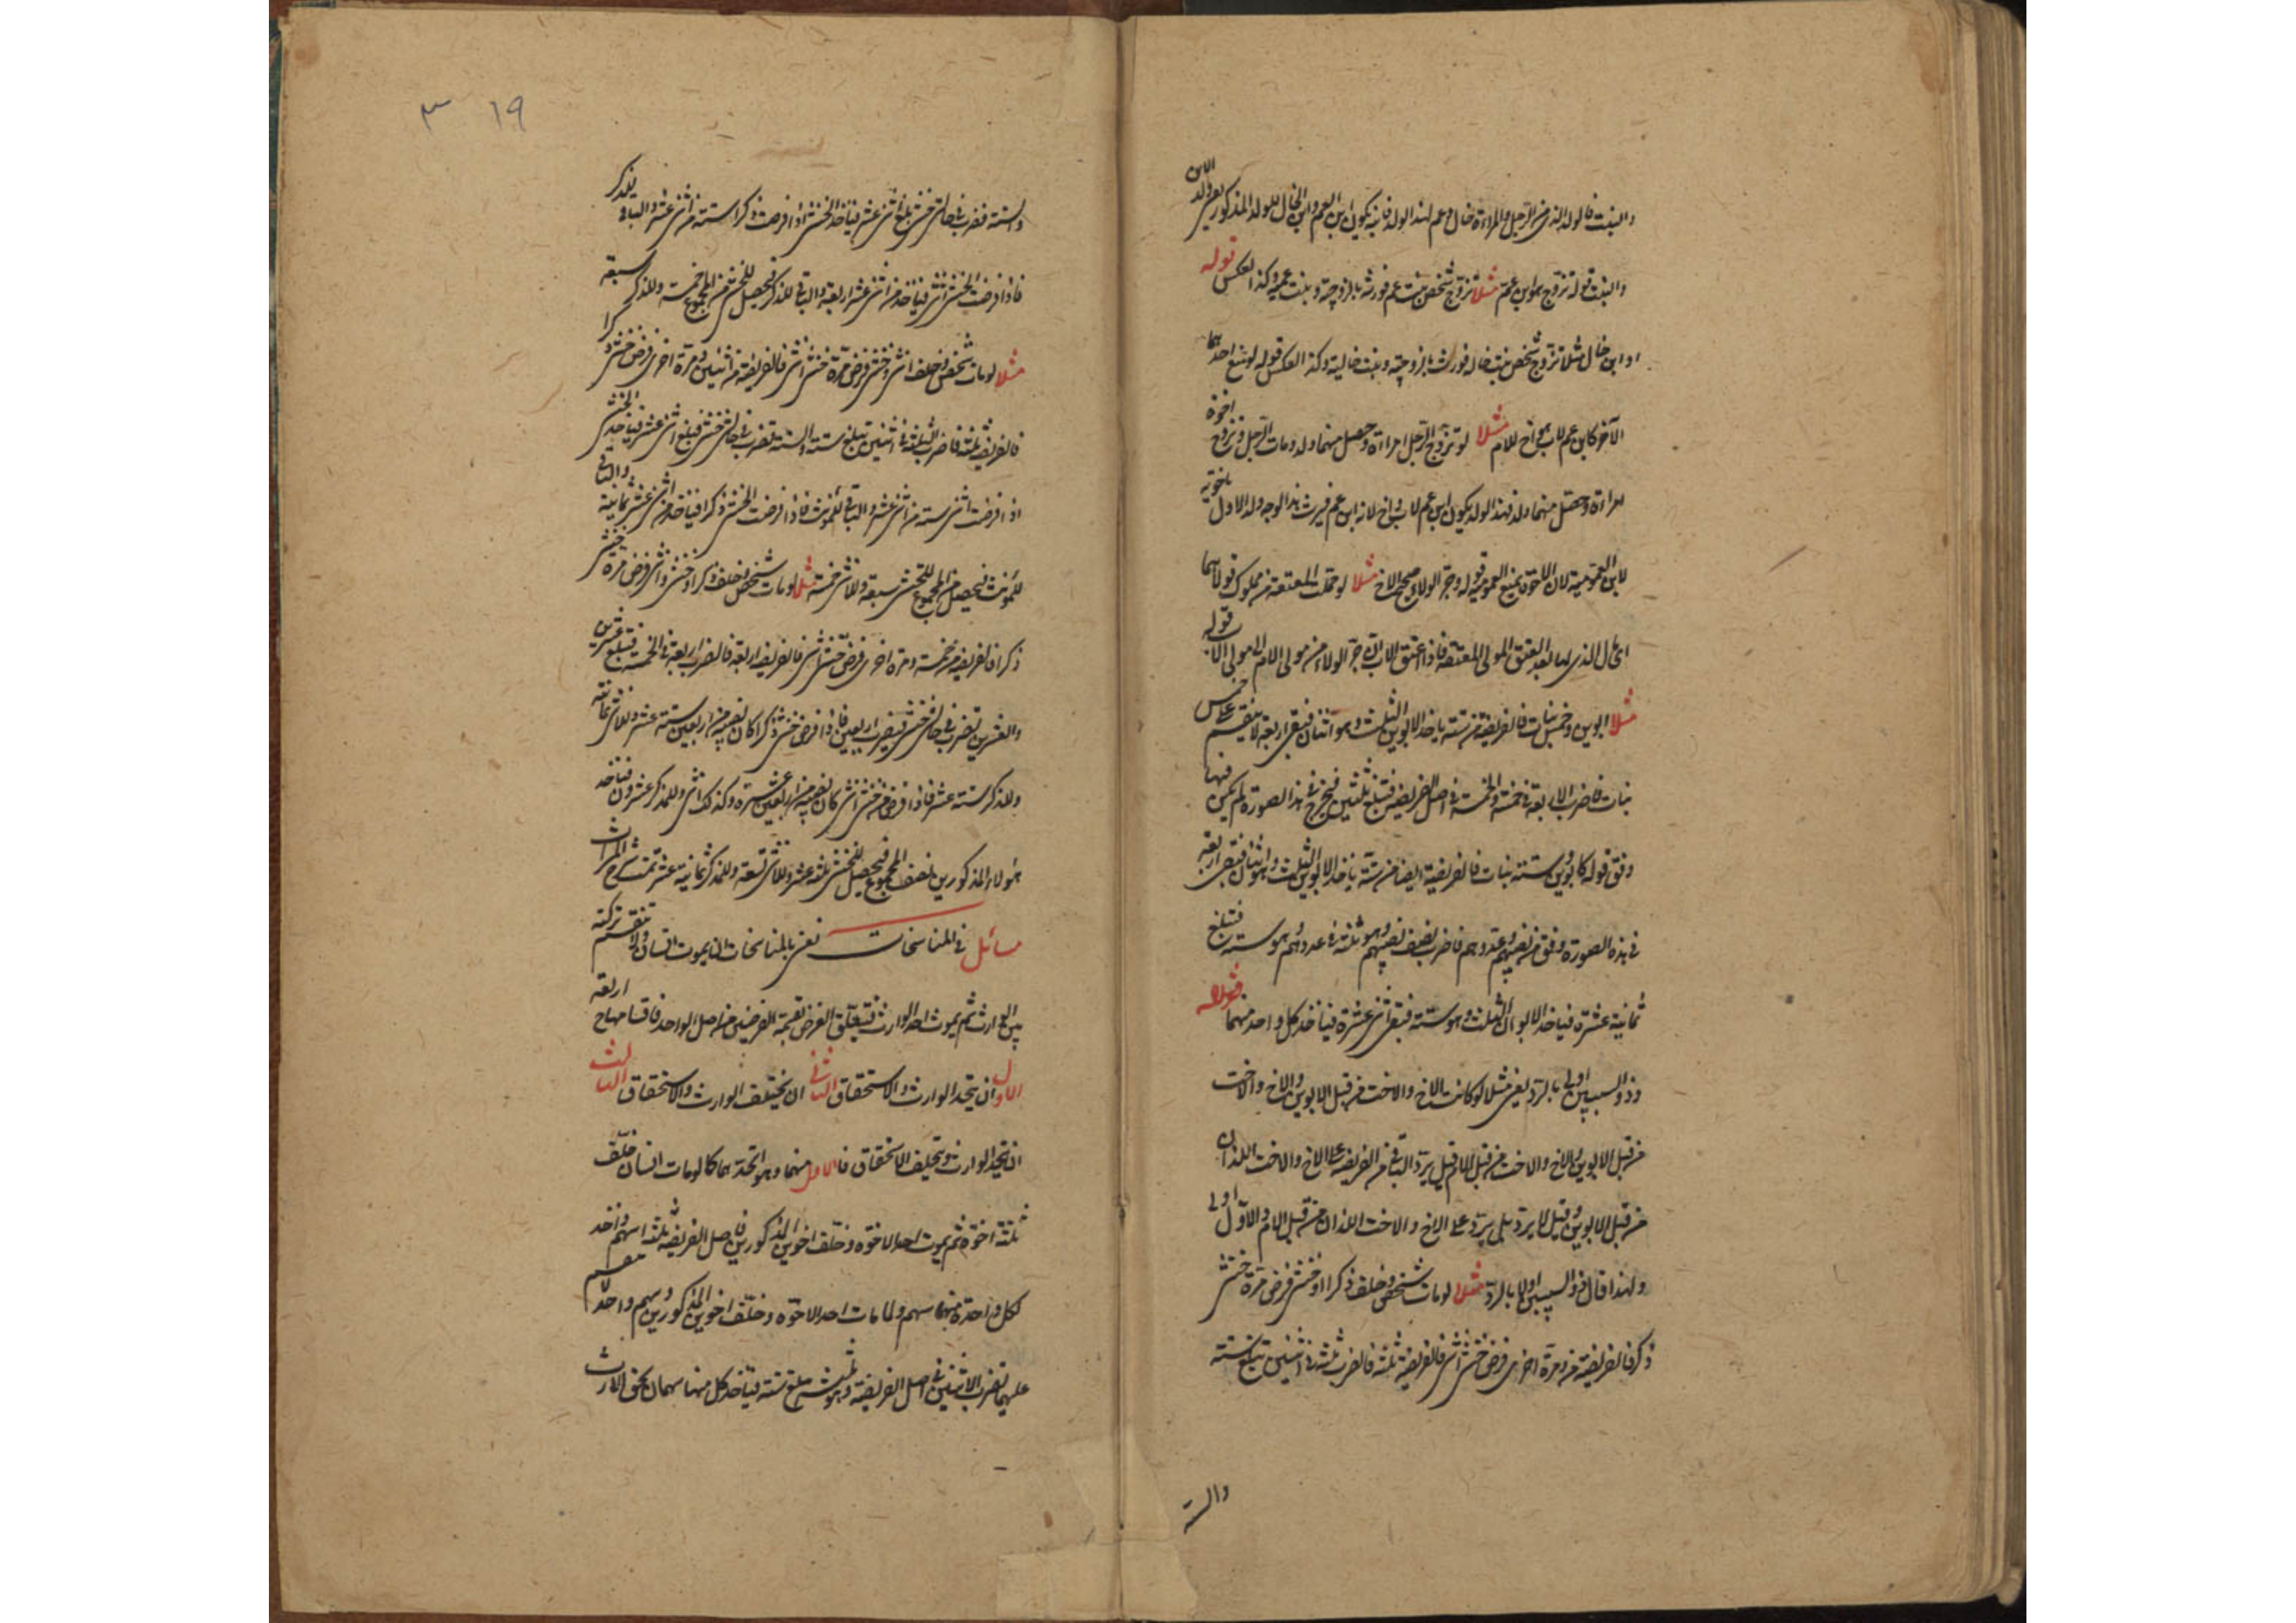 والبنت فالولد الذى من الرجل والمراة خال وعم لهذا الولد فانه يكون ابن العم وابن الخال للولد المذكور يعنى ولد الابن
والبنت قوله تزوج هو ابن عم مثلا تزوج شخص بنت عم فورثه بالزوجية وبنت عمه وكذا العكس قوله
او ابن خال مثلا تزوج شخص بنت خاله فورث بالزوجية وبنت خالية وكذا العكس قوله لو منع احدهما
الآخر كابن عم لاب هو اخ للام مثلا لو تزوج الرجل امراة وحصل منهما ولد ومات الرجل وتزوج اخوه
امراة وحصل منهما ولد فهذا الولد يكون ابن عم لاب واخ لانه ابن عم فيرث بهذا الوجه ولد الاول باخوته
لابن العمومية لان الاخوة يمنع العمومة قوله وجر الولاء صحيح الاخ مثلا لو حملت المعتقة من مملوك فولا هما
المال الذى لهما بعد العتق المولى المعتقه فاذا اعتق الاب جر الولاء من مولى الام الى مولى الاب قوله
مثلا ابوين وخمس بنات فالفريضة من ستة ياخذ الابوين الثلث وهو اثنان فيبقى اربعة لا ينقسم على خمس
بنات فاضرب الاربعة فى خمسة والخمسة فى اصل الفريضة فتبلغ ثلثين فيخرج فى هذا الصورة لم يكن فيها
وفق قوله كابوين وستة بنات فالفريضة ايضا من ستة ياخذ الابوين الثلث وهو اثنان فيبقى اربعة
فى هذه الصورة وفق من نصيبهم وعددهم فاضرب نصف نصيبهم وهو ثلثة فى عددهم وهو ستة فتبلغ
ثمانية عشرة فياخذ الابوان الثلث وهو ستة فيبقى اثنى عشرة فياخذ كل واحد منهما قوله
وذو السببين اولى بالرد يعنى مثلا لو كانت الاخ والاخت من قبل الابوين والاخ والاخت
من قبل الابوين والاخ والاخت من قبل الام قيل يرد الباقى من الفريضة على الاخ والاخت اللذان
من قبل الابوين وقيل لا يرد بل يرد على الاخ والاخت اللذان من قبل الام والاول اولى
ولهذا قال ذو السببين اولى بالرد مثلا لو مات شخص وخلف ذكرا او خنثى فرض مرة خنثى
ذكر فالفريضة من ومرة اخرى فرض خنثى انثى فالفريضة ثلثة فالضرب ثلثة فى اثنين تبلغ ستة
والستة
١٩ ٣
والستة فتضرب فى حالتى خنثى تبلغ اثنى عشر فياخذ الخنثى اذا فرضت ذكرا ستة من اثنى عشر والباقى للذكر
فاذا فرضت الخنثى انثى فياخذ من اثنى عشر اربعة والباقى للذكر فيحصل للخنثى من المجموع خمسة وللذكر سبعة
مثلا لو مات شخص وخلف انثى وخنثى فرض مرة خنثى انثى فالفريضة من اثنين ومرة اخرى فرض خنثى ذكرا
فالفريضة ثلثة فاضرب الثلثة فى اثنين تبلغ ستة والستة تضرب فى حالتى خنثى فبلغ اثنى عشر فياخذ الخنثى
اذا فرضت انثى ستة من اثنى عشر والباقى للمونث فاذا فرضت الخنثى ذكرا فياخذ من اثنى عشر ثمانية والباقى
للمونث فيحصل من المجموع للخنثى سبعة وللانثى خمسة مثلا لو مات شخص وخلف ذكرا وخنثى وانثى فرض مرة خنثى
ذكرا فالفريضة من خمسة ومرة اخرى فرض خنثى انثى فالفريضة اربعة فالضرب اربعة فى الخمسة فتبلغ عشرين
والعشرين تضرب فى حالتى خنثى فيصير اربعين فاذا فرض خنثى ذكرا كان نصيبه من اربعين ستة عشر وللانثى ثمانية
وللذكر ستة عشر فاذا فرض خنثى انثى كان نصيبه من اربعين عشرة وكذلك انثى وللمذكر عشرون فياخذ
هولاء المذكورين نصف المجموع فيحصل للخنثى ثلثة عشر وللانثى تسعة وللمذكر ثمانية عشر تمت شرح الميراث
مسائل فى المناسخات نعنى بالمناسخات ان يموت انسان ولا تنقسم تركته
بين الوارث ثم يموت احد الوارث فيتعلق الغرض بقسمة الفرضين من اصل الواحد فاقسامها ح اربعة
الاول ان يتحد الوارث والاستحقاق الثانى ان يختلف الوارث والاستحقاق الثالث
ان يتحد الوارث ويختلف الاستحقاق فالاول منهما وهو اتحدهما كما لو مات انسان خلف
ثلثة اخوة ثم يموت احد الاخوة وخلف اخوين المذكورين فاصل الفريضة ثلثة اسهم واخذ
كل واحدة منهما سهم ولما مات احد الاخوة وخلف اخوين المذكورين وسهم واحد لا ينقسم
عليهما تضرب الاثنين فى اصل الفريضة وهو ثلثة مبلغ ستة فياخذ كل منهما سهمان بحق الارث